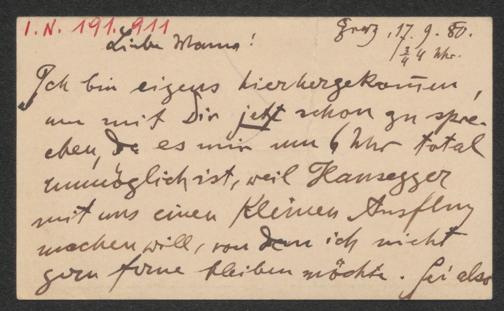 I. N. 191.911
Graz, 17. 9. 80.
3/4 4 Uhr.
Liebe Mama!
Ich bin eigens hierhergekommen,
um mit Dir jetzt schon zu spre-
chen, da es mir um 6 Uhr total
unmöglich ist, weil Hausegger
mit uns einen kleinen Ausflug
machen will, von dem ich nicht
gern ferne bleiben möchte. Sei also